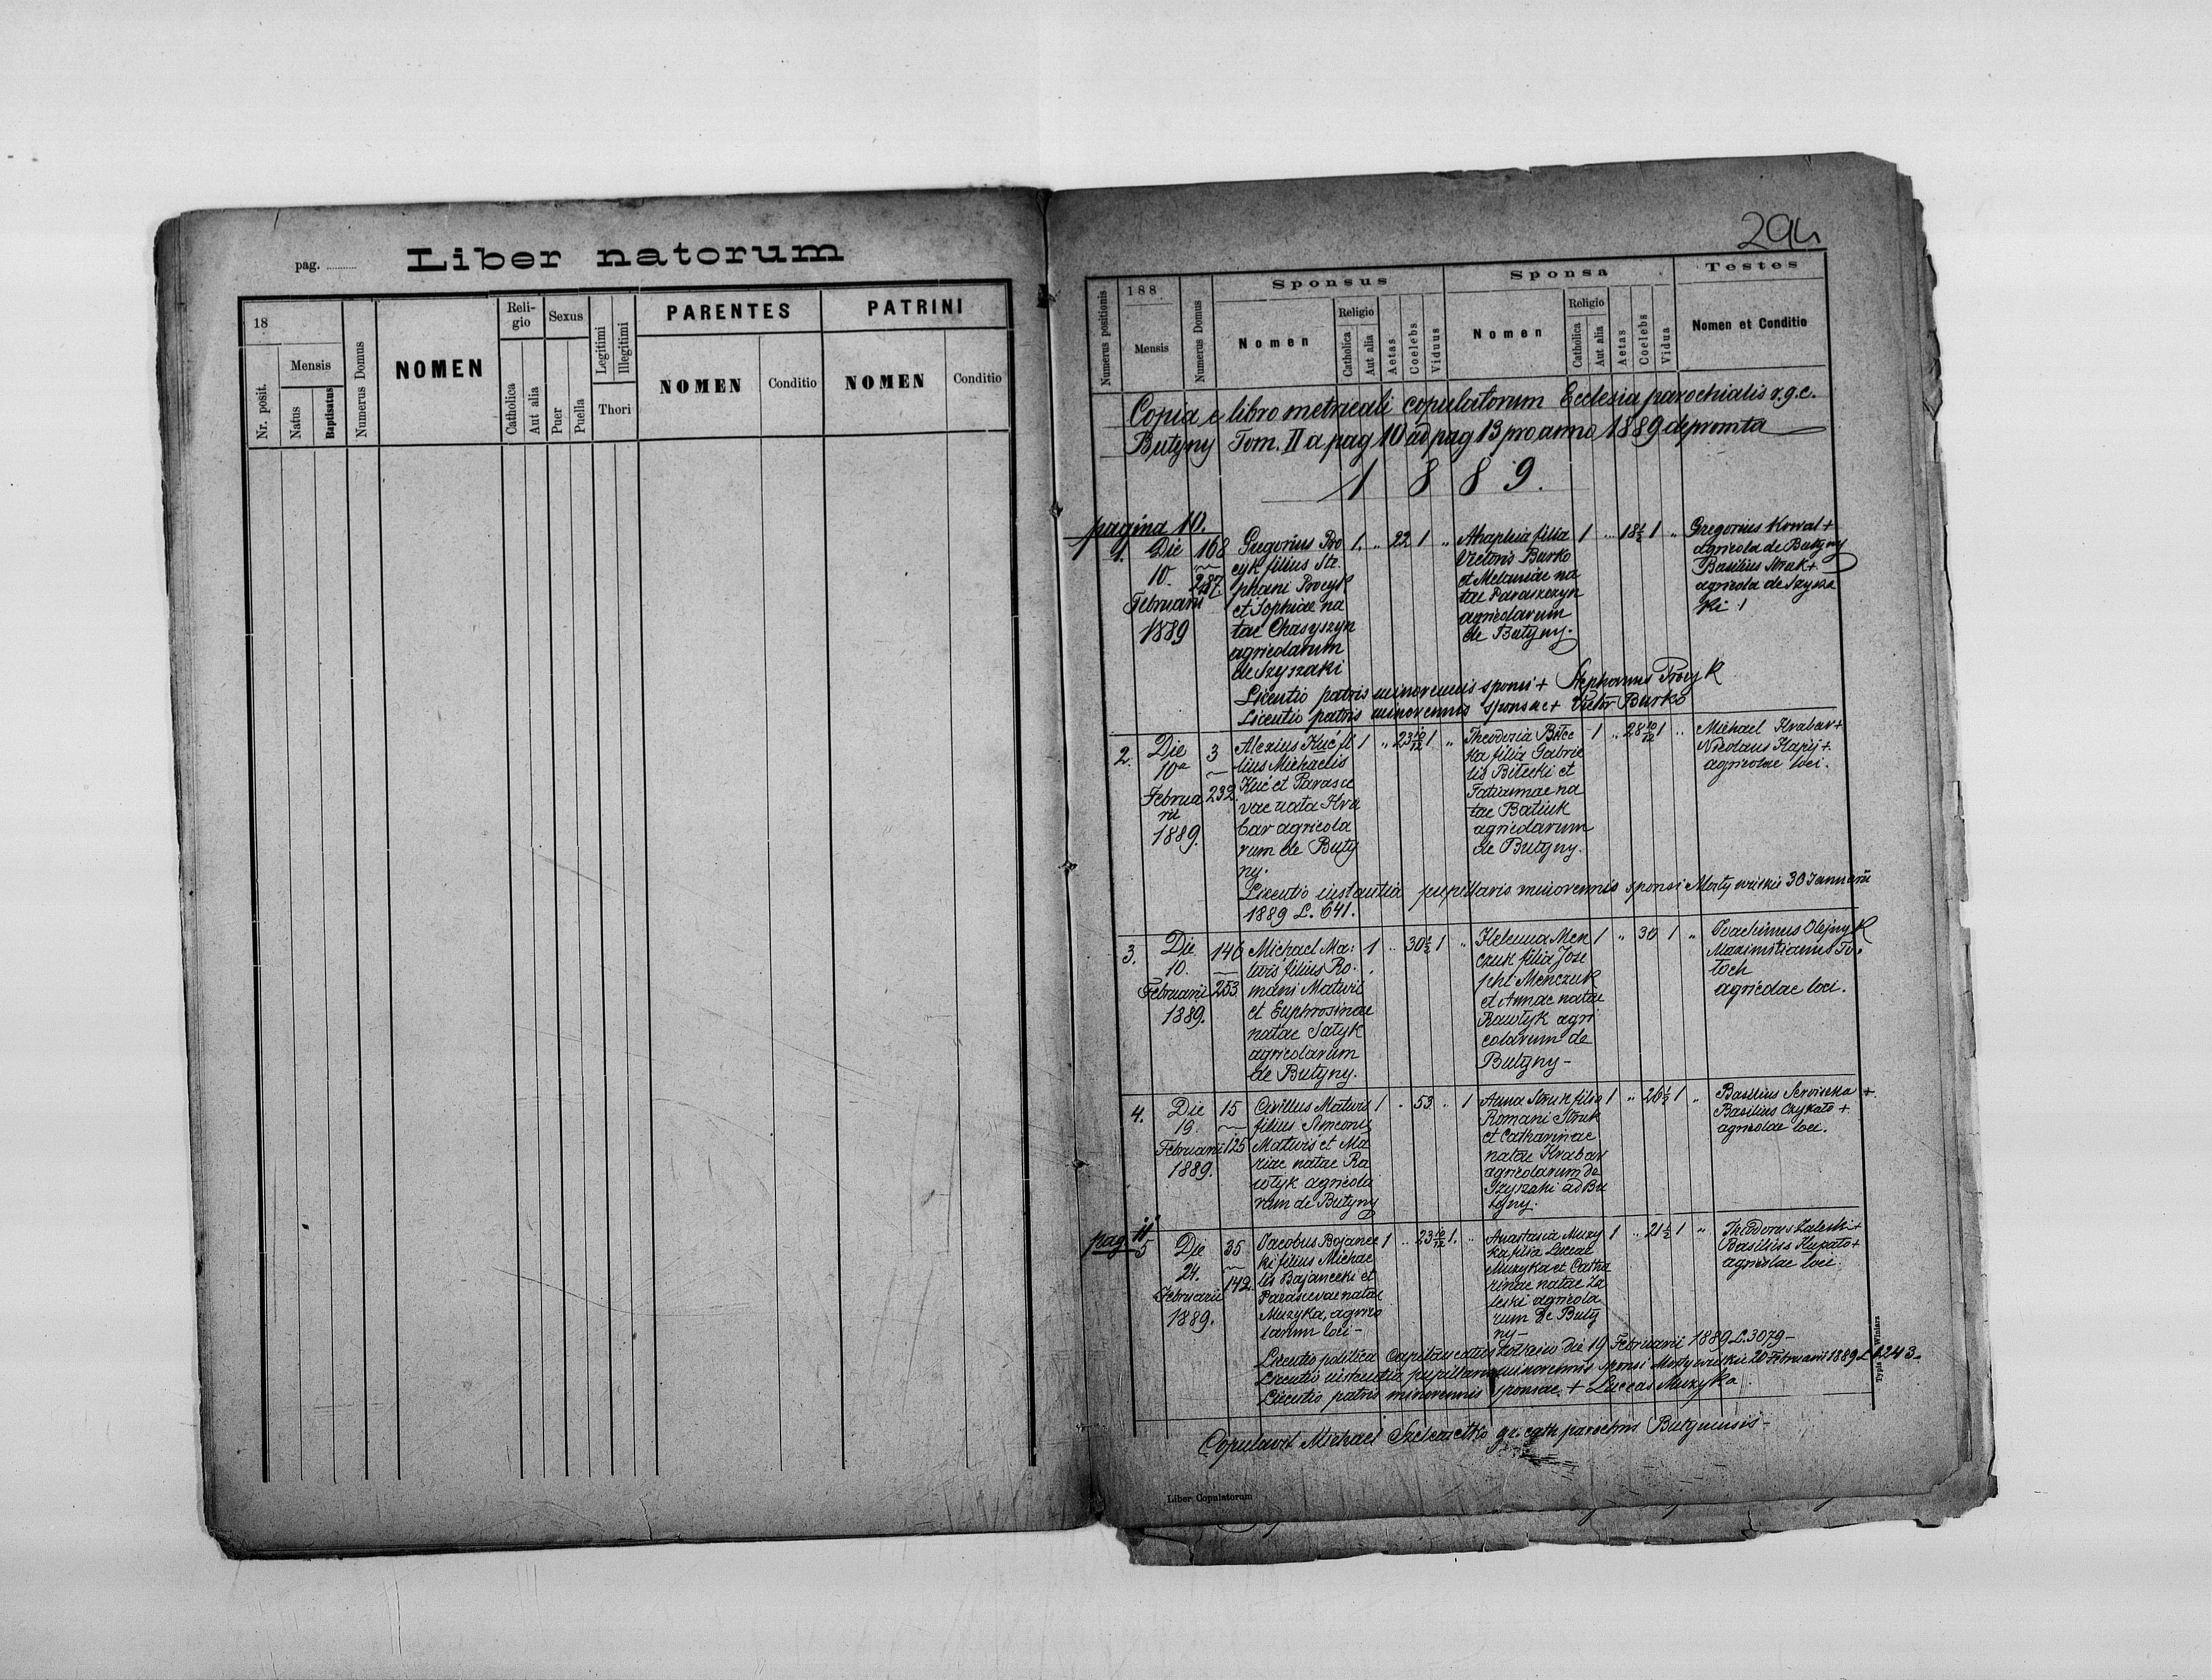 pag.
Liber natorum
18
Nr. posit.
Mensis
Natus
Baptisatus
Numerus Domus
NOMEN
Reli-
gio
Catholica
Aut alia
Sexus
Puer
Puella
Legitimi
Illegitimi
Thori
PARENTES
NOMEN
Conditio
PATRINI
NOMEN
Conditio
294
Numerus positionis
188
Mensis
Numerus Domus
Sponsus
Nomen
Religio
Catholica
Aut alia
Aetas
Coelebs
Viduus
Sponsa
Nomen
Religio
Catholica
Aut alia
Aetas
Coelebs
Vidua
Testes
Nomen et Conditio
Copia e libro metricali copulatorum Ecclesia parochialis r.g.c.
Butyny Tom. II a pag 10 ad pag 13 pro anno 1889 depromta
1889.
pagina 10.
1.
Die
10.
Februarii
1889
168
287.
Gregorius Pro
cyk filius Ste
phani Procyk
et Sophiae na
tae Chasyszyn
agricolarum
de Szyszaki
1. " 22 1 "
Ahaphia filia
Victoris Burko
et Melaniae na
tae Paraszczyn
agricolarum
de Butyny.
1 " 18½ 1 "
Gregorius Kowal +
agricola de Butyny
Basilius Struk +
agricola de Szysza
ki
Licentio patris minorennis sponsi + Stephanus Procyk
Licentio patris minorennis sponsae + Victor Burko
2.
Die
10a
Februa
rii
1889.
3
232.
Alexius Kuć fi
lius Michaelis
Kuć et Parasce
vae nata Hra
bar agricola
rum de Buty
ny.
1 " 23 10/12 1 "
Theodoria Bilec
ka filia Gabrie
lis Bilecki et
Tatiannae na
tae Batiuk
agricolarum
de Butyny.
1 " 28 10/12 1 "
Michael Hrabar +
Nicolaus Hapij +
agricolae loci.
Licentio instantia pupillaris minorennis sponsi Mosty wielkie 30 Januarii
1889 L. 641.
3.
Die
10.
Februarii
1889.
146
253
Michael Ma-
twiś filius Ro-
mani Matwiś
et Euphrosinae
natae Satyk
agricolarum
de Butyny.
1 " 30½ 1 "
Helenna Men
czuk filia Jose
phi Menczuk
et Annae natae
Rawłyk agri
colarum de
Butyny -
1 " 30 1 "
Joachimus Olejnyk
Maximilianus
agricolae loci.
4.
Die
19.
Februarii
1889.
15
125
Cirillus Matwiś
filius Simeonis
Matwiś et Ma
riae natae Ra
włyk agricola
rum de Butyny
1 " 53 " 1
Anna Struk filia
Romani Struk
et Catharinae
natae Hrabar
agricolarum de
Szyszaki ad Bu
tyny.
1 " 26½ 1 "
Basilius +
Basilius +
agricolae loci.
pag. 11
5
Die
24.
Februarii
1889.
35
142.
Jacobus Bojanec
ki filius Michae
lis Bajanecki et
Parascevae natae
Muzyka, agrico
larum loci -
1 " 23 10/12 1. "
Anastasia Muzy
ka filia Lucae
Muzyka et Catha
rinae natae Za
leski agricola
rum de Buty
ny -
1 " 21½ 1 "
Theodorus Zaleski +
Basilius +
agricolae loci.
Licentio politica Capitaneatus Żołkiew die 19 Februarii 1889 L. 3079 -
Licentio instantia pupillaris minorennis sponsi Mosty wielkie 20 Februarii 1889 L 1243 -
Licentio patris minorennis sponsae + Luccas Muzyka
Copulavit Michael gr. cath parochus Butynensis -
Liber Copulatorum
Typis Winiarz